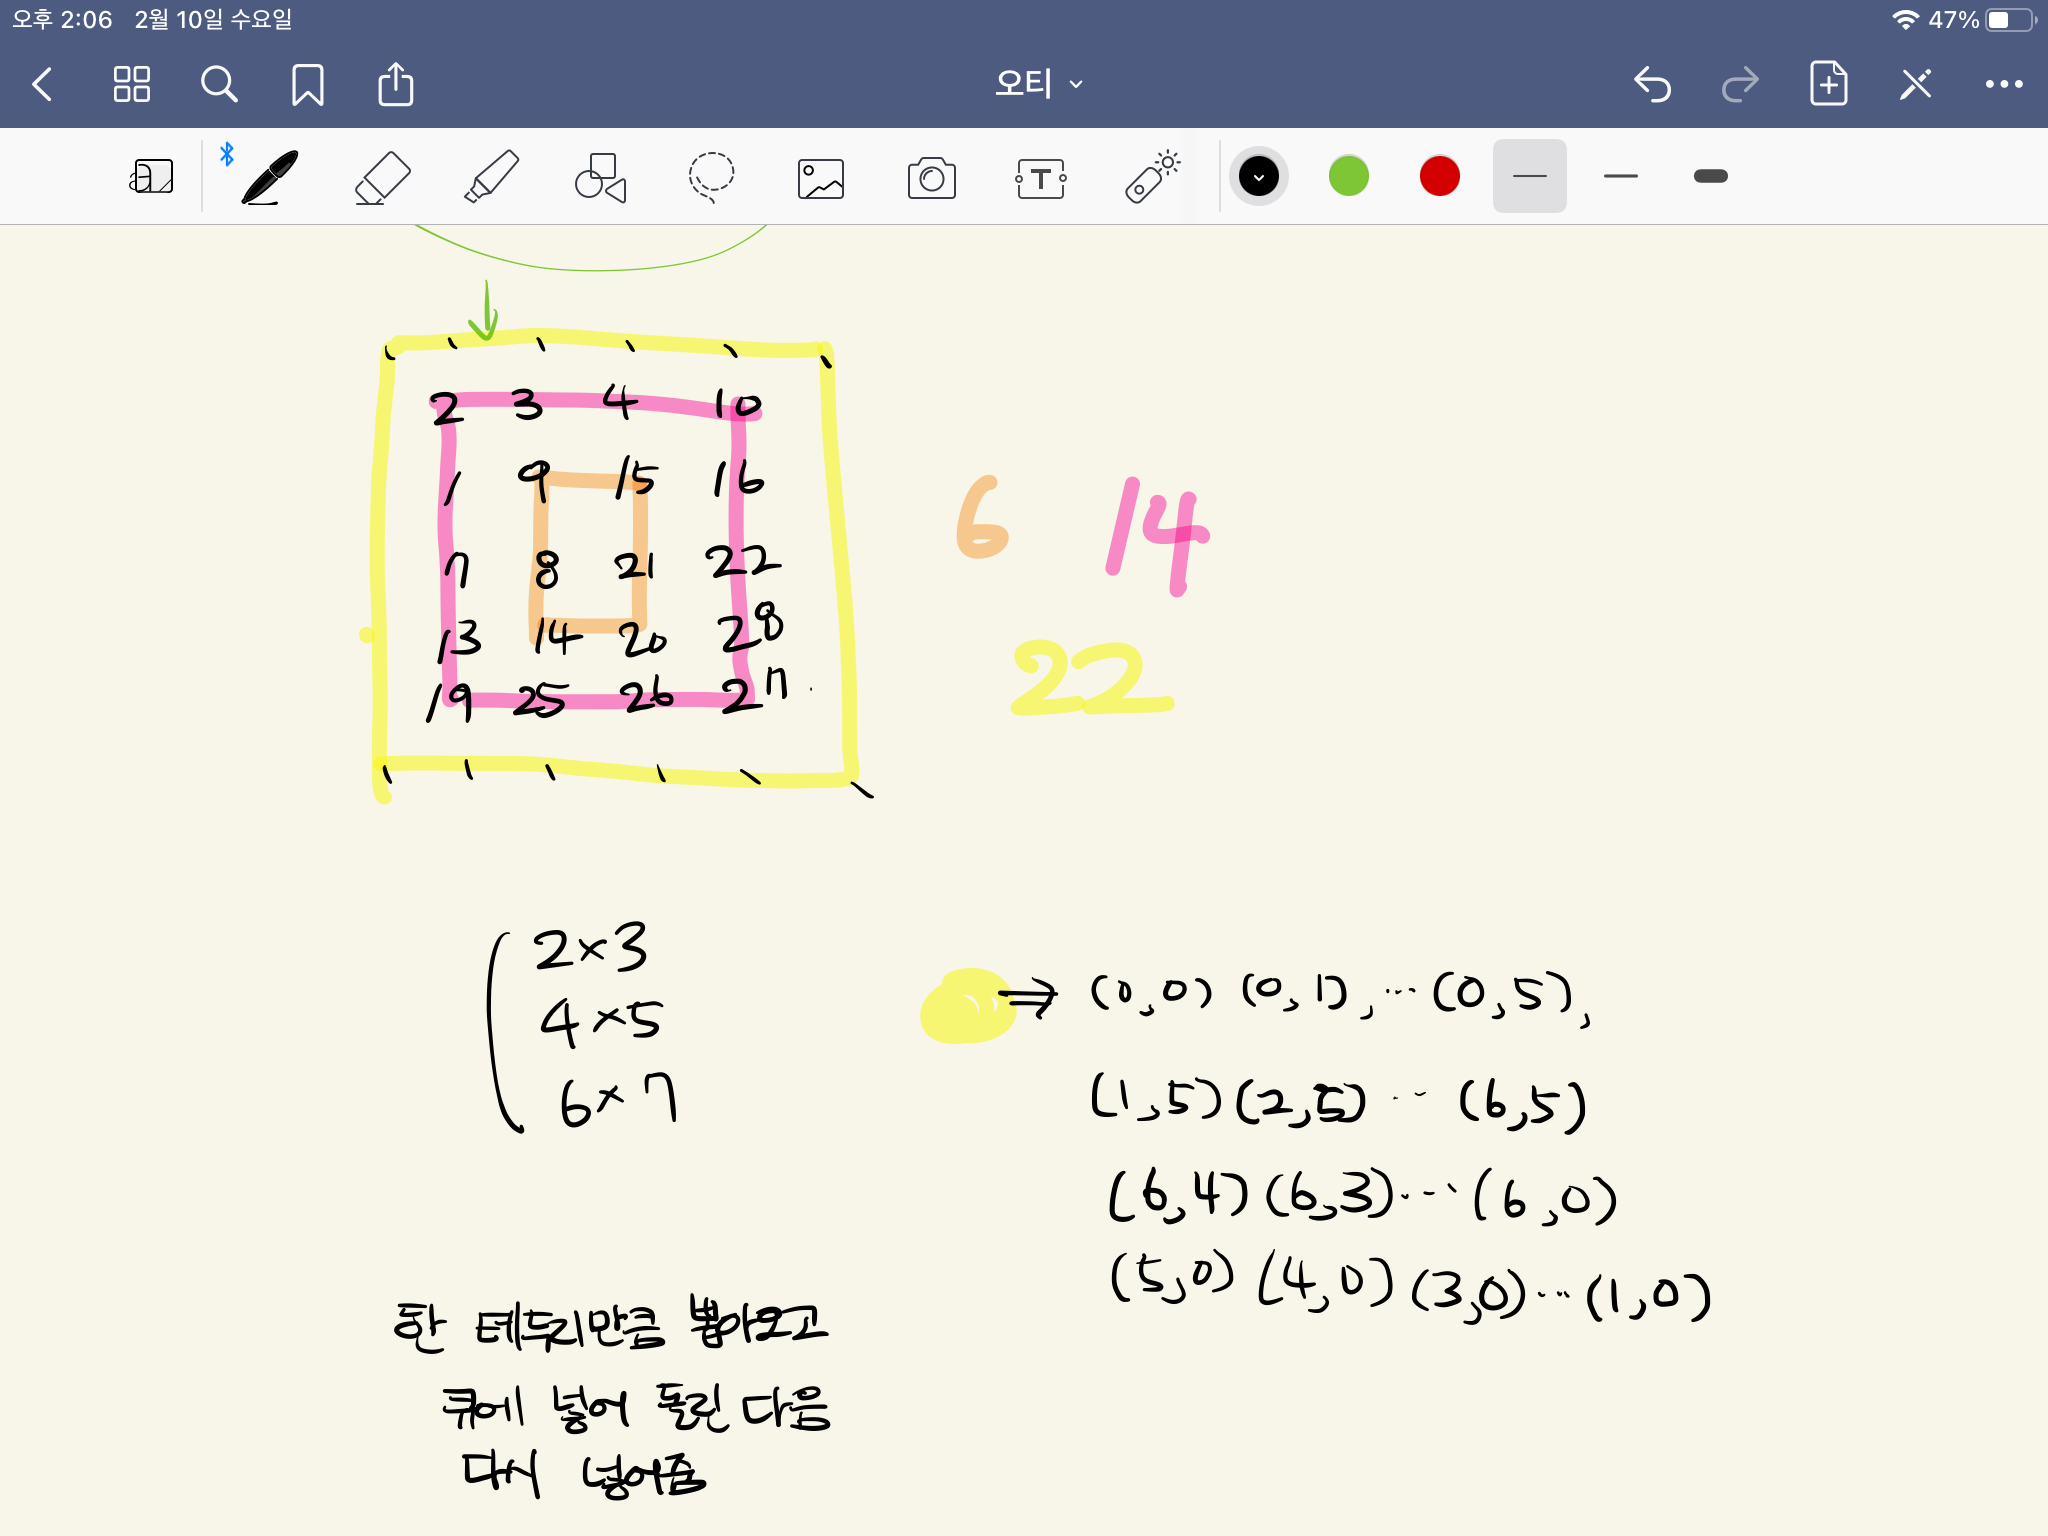 오후 2:06 2월 10일 수요일 47%
오티
T
2 3 4 10
1 9 15 16
6 14
7 8 21 22
13 14 20 28
22
19 25 26 27
2×3
4×5
6×7
⇒ (0,0) (0,1), ... (0,5),
(1,5) (2,5) ... (6,5)
(6,4) (6,3) ... (6,0)
(5,0) (4,0) (3,0) ... (1,0)
한 테두리만큼 뽑아오고
큐에 넣어 돌린 다음
다시 넣어줌